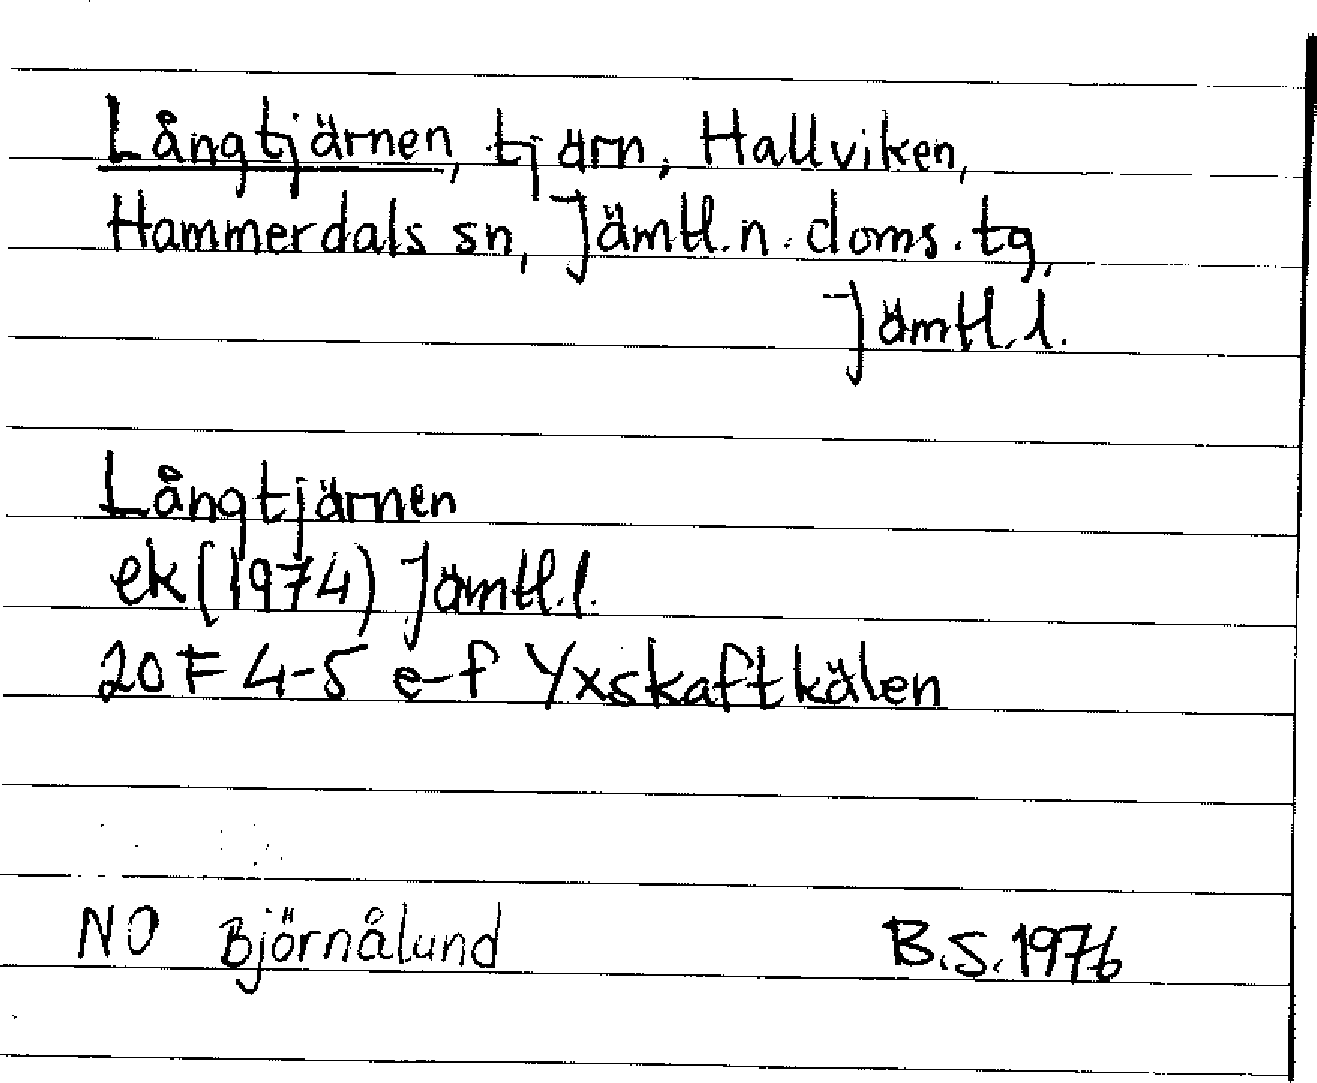 Långtjärnen, tjärn, Hallviken,
Hammerdals sn, Jämtl.n.doms.tg,
Jämtl.l.
Långtjärnen
ek (1974) Jämtl.l.
20 F 4-5 e-f Yxskaftkälen
NO Björnålund B.S.1976